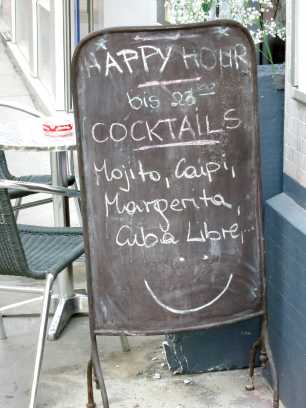 HAPPY HOUR
bis 23.00
COCKTAILS
Mojito, Caipi,
Margerita,
Cuba Libre,
...